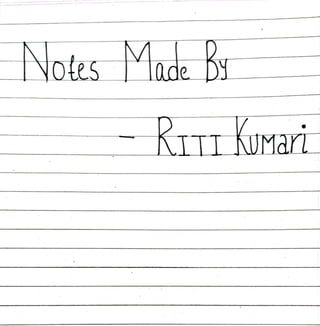 Notes Made By
- RITI KUMari